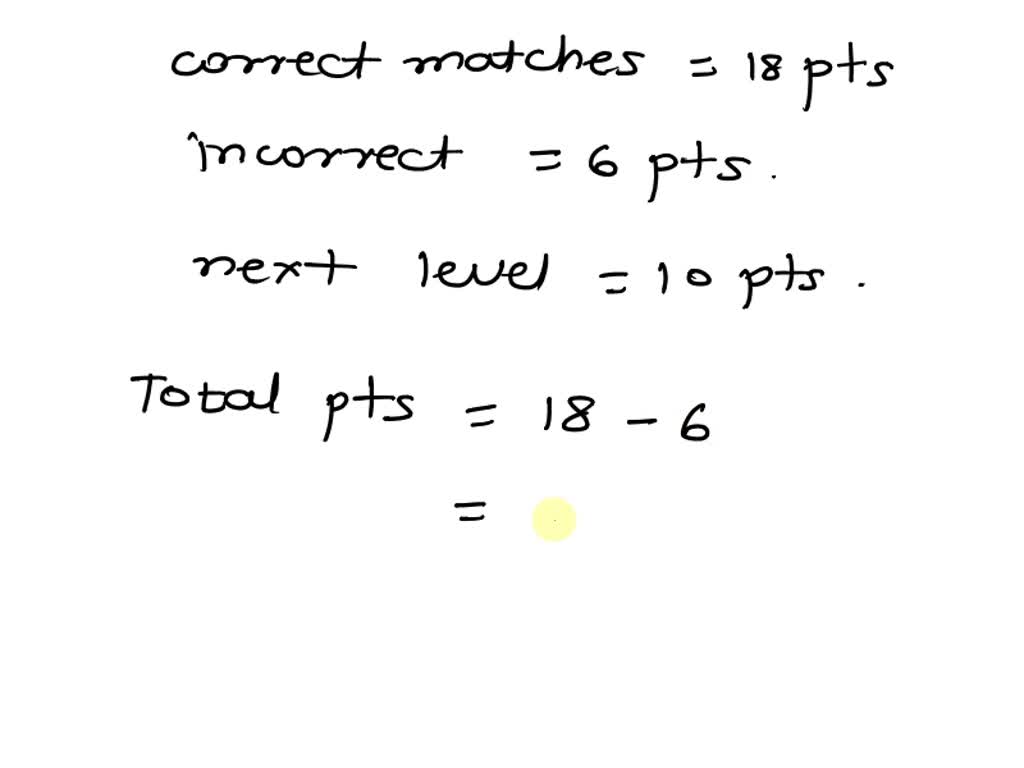 correct matches = 18 pts
incorrect = 6 pts.
next level = 10 pts.
Total pts = 18 - 6
=